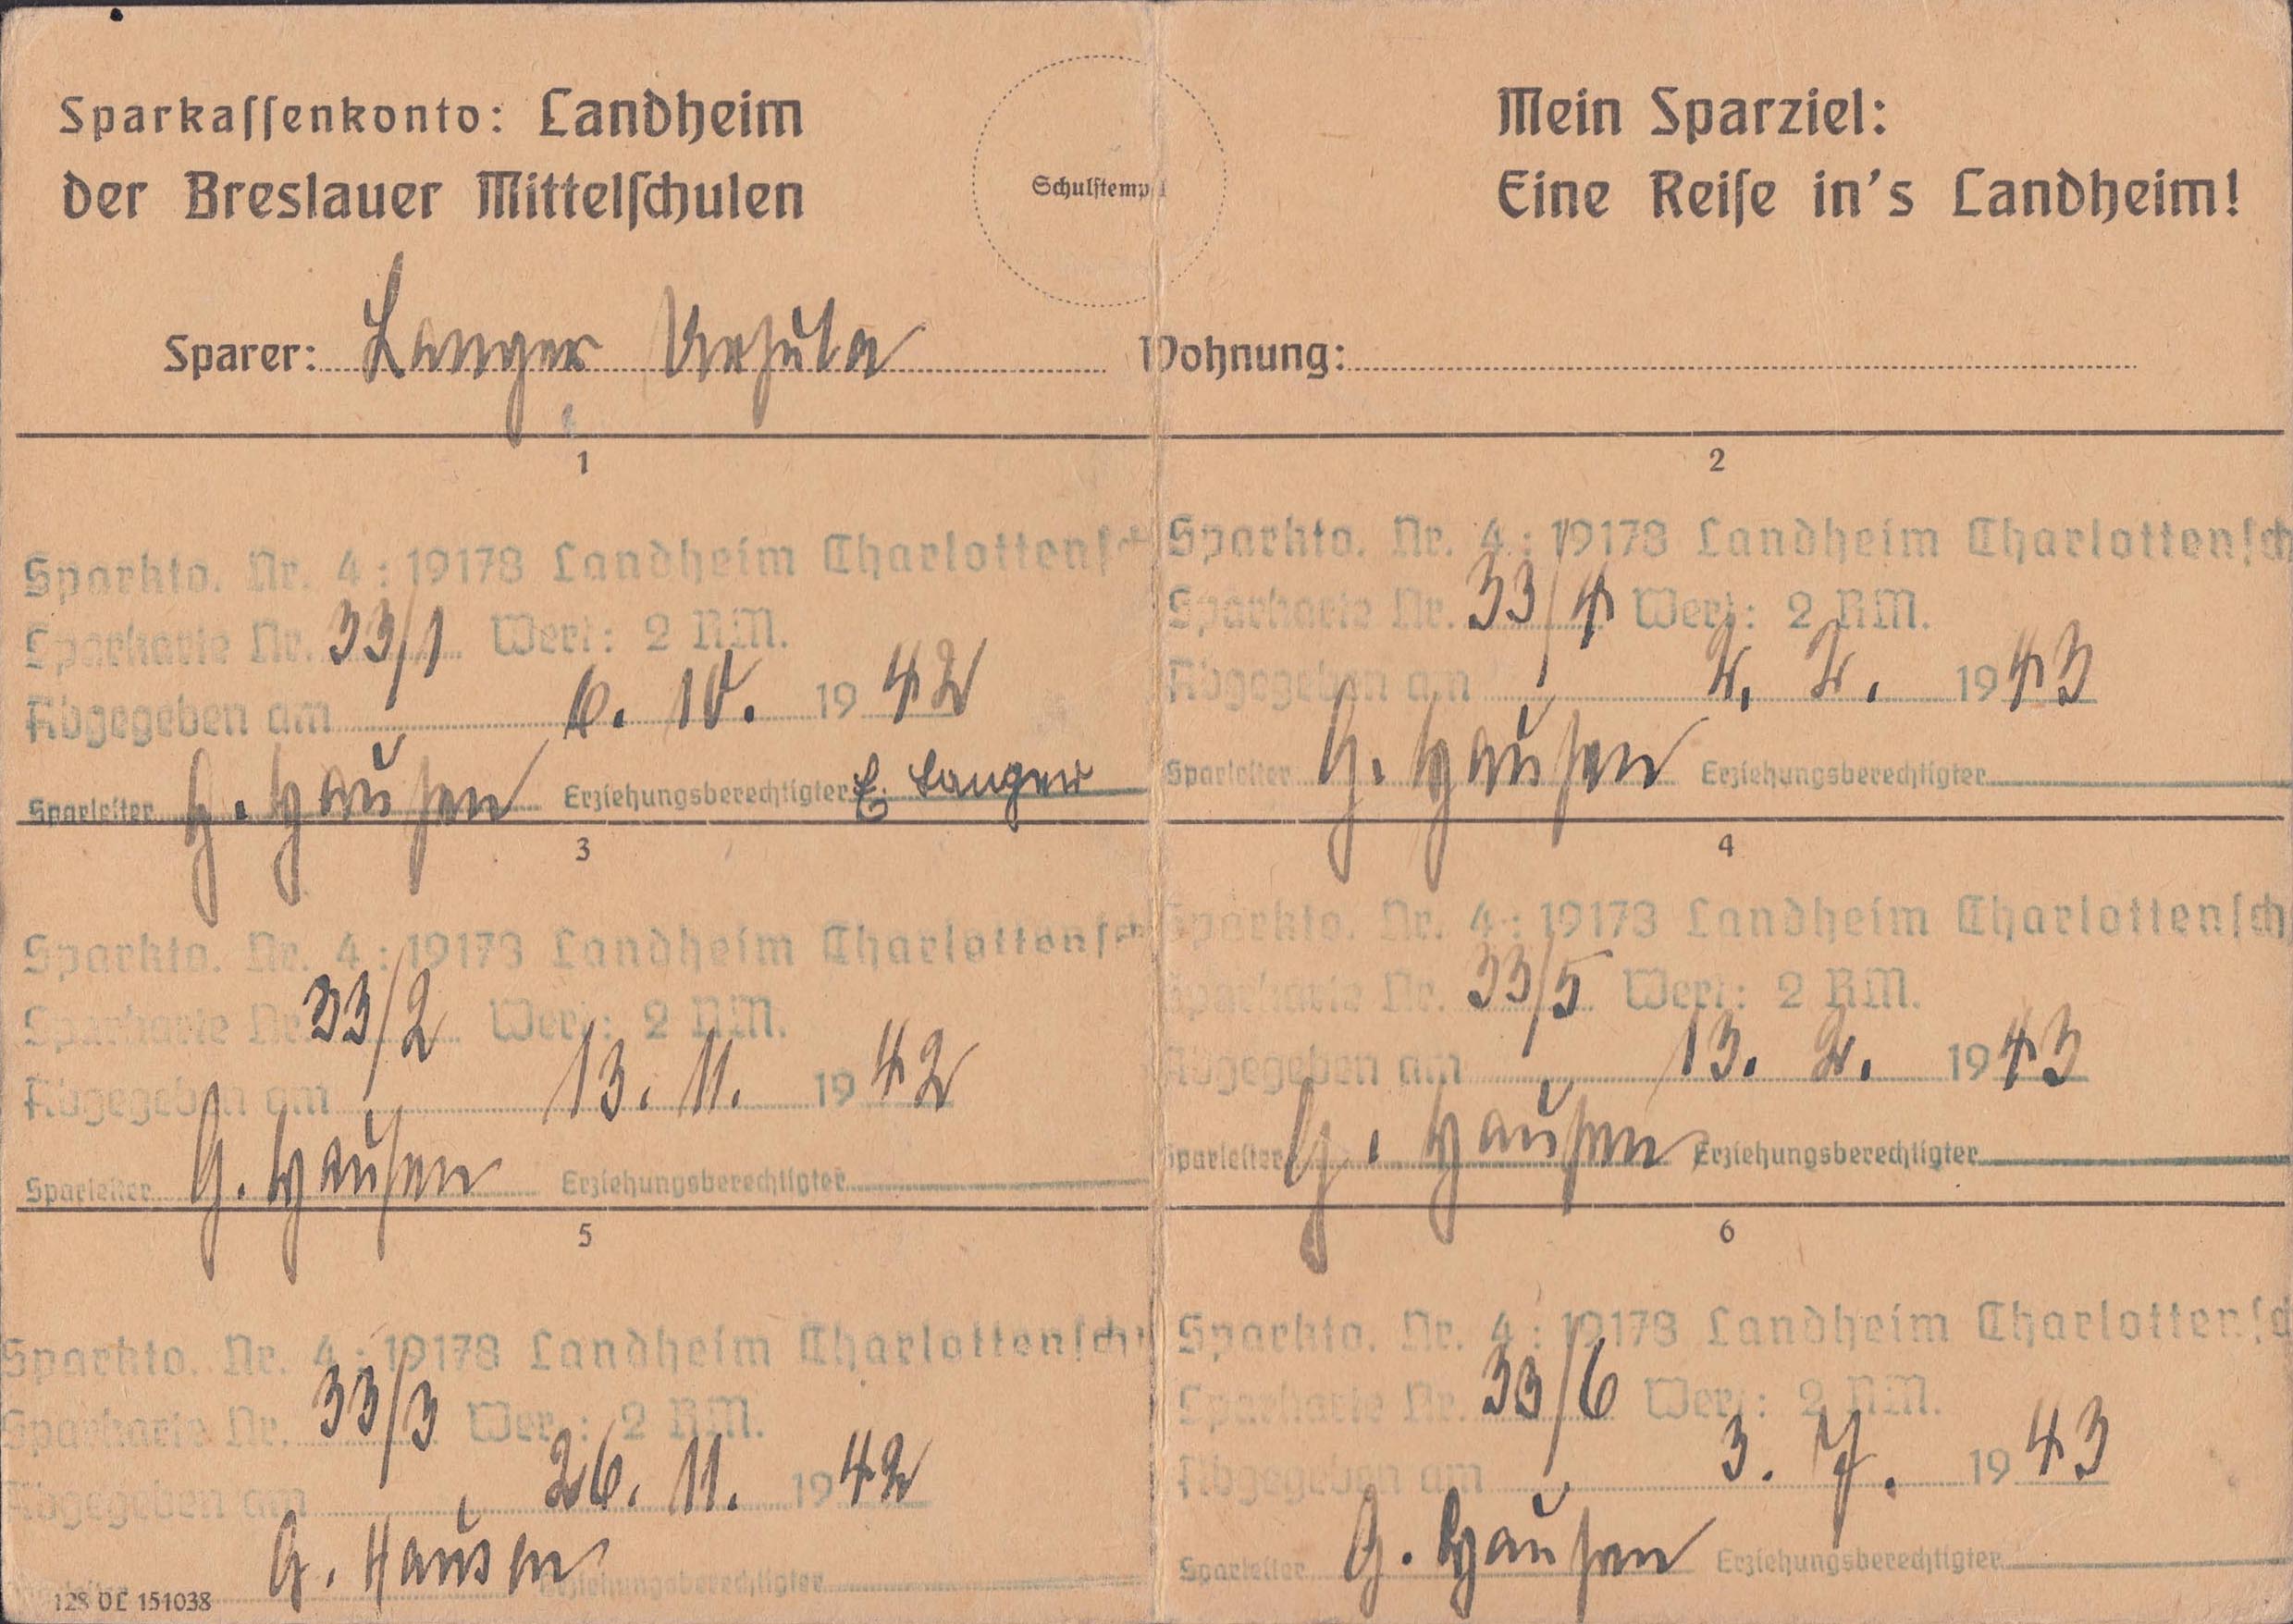 Sparkaſſenkonto: Landheim
der Breslauer Mittelſchulen
Schulſtempel
Mein Sparziel:
Eine Reiſe in's Landheim!
Sparer: Langer Ursula
Wohnung:
1
Sparkto. Nr. 4: 19178 Landheim Charlottenſch
Sparkarte Nr. 33/1 Wert: 2 RM.
Abgegeben am 6. 10. 1942
Sparleiter G. Hausen Erziehungsberechtigter E. Langer
2
Sparkto. Nr. 4: 19178 Landheim Charlottenſch
Sparkarte Nr. 33/4 Wert: 2 RM.
Abgegeben am 2. 2. 1943
Sparleiter G. Hausen Erziehungsberechtigter
3
Sparkto. Nr. 4: 19178 Landheim Charlottenſch
Sparkarte Nr. 33/2 Wert: 2 RM.
Abgegeben am 13. 11. 1942
Sparleiter G. Hausen Erziehungsberechtigter
4
Sparkto. Nr. 4: 19178 Landheim Charlottenſch
Sparkarte Nr. 33/5 Wert: 2 RM.
Abgegeben am 13. 2. 1943
Sparleiter G. Hausen Erziehungsberechtigter
5
Sparkto. Nr. 4: 19178 Landheim Charlottenſch
Sparkarte Nr. 33/3 Wert: 2 RM.
Abgegeben am 26. 11. 1942
G. Hausen Erziehungsberechtigter
128 OL 151038
6
Sparkto. Nr. 4: 19178 Landheim Charlottenſc
Sparkarte Nr. 33/6 Wert: 2 RM.
Abgegeben am 3. 7. 1943
Sparleiter G. Hausen Erziehungsberechtigter